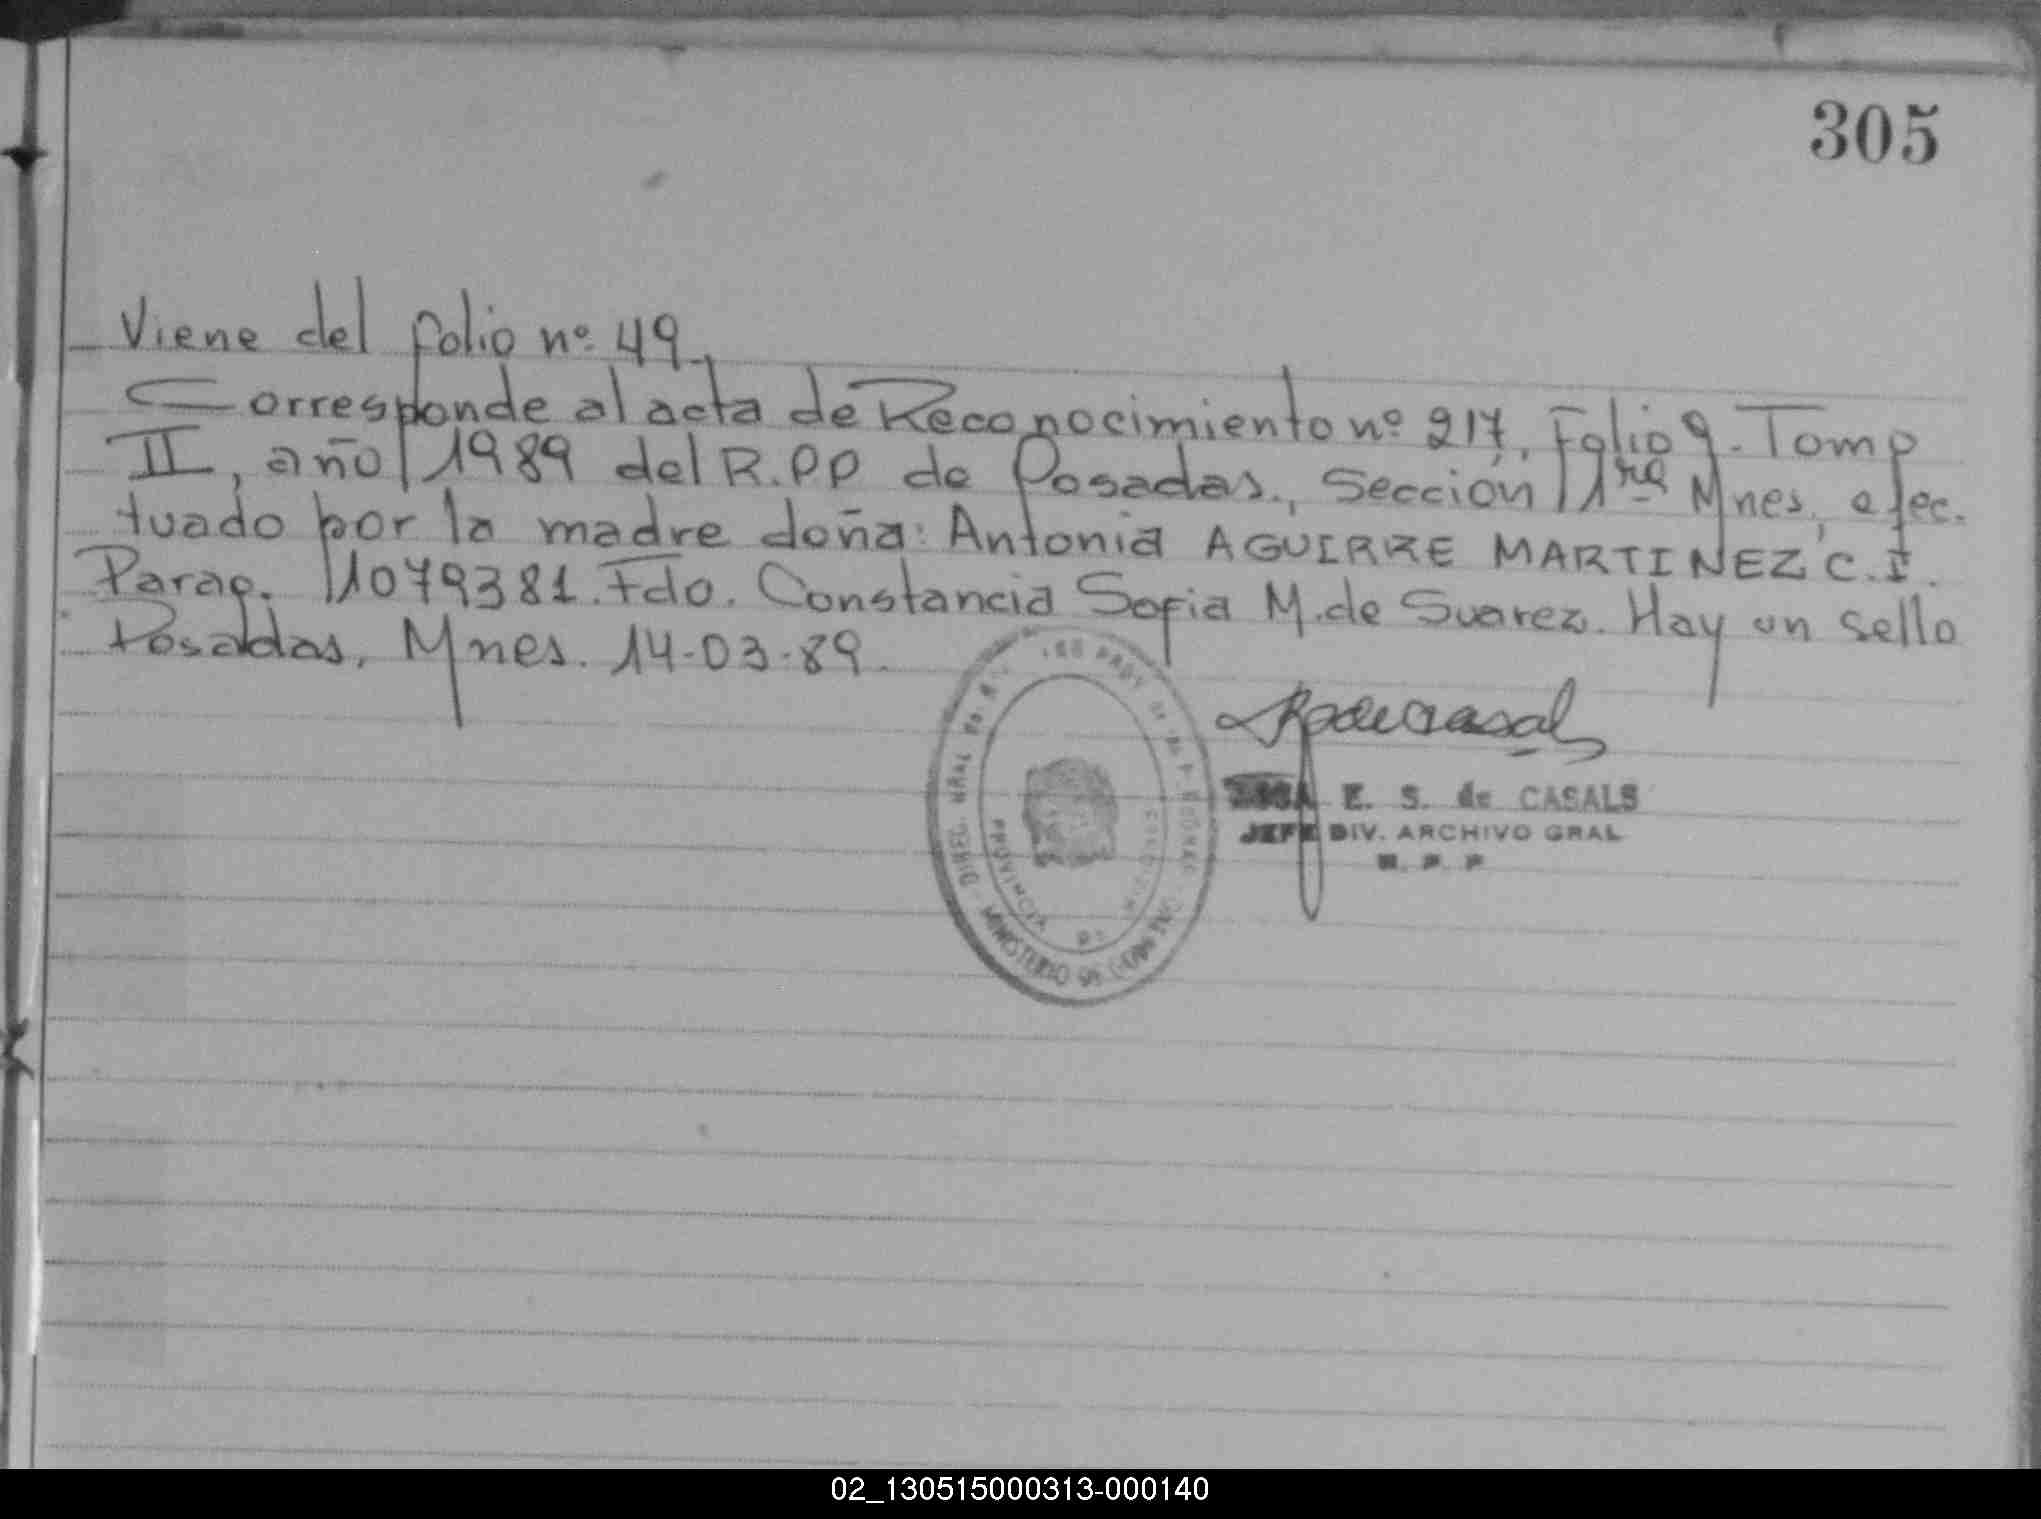 305
Viene del folio nº 49.
Corresponde al acta de Reconocimiento nº 217, Folio 9. Tomo
II, año 1989 del R.PP de Posadas., Sección 1ra Mnes, efec.
tuado por la madre doña: Antonia AGUIRRE MARTINEZ C.I.
Parag. 1079381. Fdo. Constancia Sofia M. de Suarez. Hay un sello
Posadas, Mnes. 14-03-89.
E. S. de CASALS
JEFE DIV. ARCHIVO GRAL
R. P. P
PROVINCIA DE MISIONES
MINISTERIO DE GOBIERNO
02_130515000313-000140